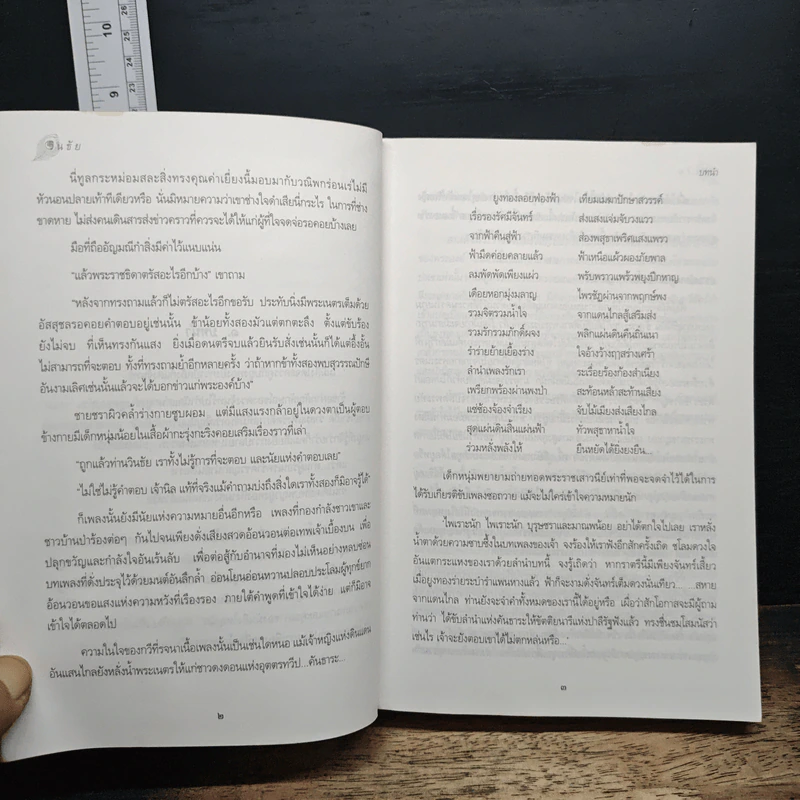 วินชัย
นี่ทูลกระหม่อมสละสิ่งทรงคุณค่าเยี่ยงนี้มอบมากับวณิพกร่อนเร่ไม่มี
หัวนอนปลายเท้าทีเดียวหรือ นั่นมิหมายความว่าเขาช่างใจดำเสียนี่กระไร ในการที่ช่าง
ขาดหาย ไม่ส่งคนเดินสารส่งข่าวคราวที่ควรจะได้ให้แก่ผู้ที่ใจจดจ่อรอคอยบ้างเลย
มือที่ถืออัญมณีกำสิ่งมีค่าไว้แนบแน่น
“แล้วพระราชธิดาตรัสอะไรอีกบ้าง” เขาถาม
“หลังจากทรงถามแล้วก็ไม่ตรัสอะไรอีกขอรับ ประทับนิ่งมีพระเนตรเต็มด้วย
อัสสุชลรอคอยคำตอบอยู่เช่นนั้น ข้าน้อยทั้งสองมัวแต่ตกตะลึง ตั้งแต่ขับร้อง
ยังไม่จบ ที่เห็นทรงกันแสง ยิ่งเมื่อดนตรีจบแล้วยินรับสั่งเช่นนั้นก็ได้แต่อึ้งอั้น
ไม่สามารถที่จะตอบ ทั้งที่ทรงถามย้ำอีกหลายครั้ง ว่าถ้าหากข้าทั้งสองพบสุวรรณปักษี
อันงามเลิศเช่นนั้นแล้วจะได้บอกข่าวแก่พระองค์บ้าง”
ชายชราผิวคล้ำร่างกายซูบผอม แต่มีแสงแรงกล้าอยู่ในดวงตาเป็นผู้ตอบ
ข้างกายมีเด็กหนุ่มน้อยในเสื้อผ้ากะรุ่งกะริ่งคอยเสริมเรื่องราวที่เล่า
“ถูกแล้วท่านวินชัย เราทั้งไม่รู้การที่จะตอบ และนัยแห่งคำตอบเลย”
“ไม่ใช่ไม่รู้คำตอบ เจ้านิล แท้ที่จริงแม้คำถามบ่งถึงสิ่งใดเราทั้งสองก็มิอาจรู้ได้”
ก็เพลงนั้นยังมีนัยแห่งความหมายอื่นอีกหรือ เพลงที่กองกำลังชาวเขาและ
ชาวบ้านป่าร้องต่อๆ กันไปจนเพียงดั่งเสียงสวดอ้อนวอนต่อเทพเจ้าเบื้องบน เพื่อ
ปลุกขวัญและกำลังใจอันเร้นลับ เพื่อต่อสู้กับอำนาจที่มองไม่เห็นอย่างหลบซ่อน
บทเพลงที่ดั่งประจุไว้ด้วยมนต์อันลึกล้ำ อ่อนโยนอ่อนหวานปลอบประโลมผู้ทุกข์ยาก
อ้อนวอนขอแสงแห่งความหวังที่เรืองรอง ภายใต้คำพูดที่เข้าใจได้ง่าย แต่ก็มิอาจ
เข้าใจได้ตลอดไป
ความในใจของกวีที่รจนาเนื้อเพลงนั้นเป็นเช่นใดหนอ แม้เจ้าหญิงแห่งดินแดน
อันแสนไกลยังหลั่งน้ำพระเนตรให้แก่ชาวดงดอนแห่งอุตตรทวีป...คันธาระ...
๒
บทนำ
ยูงทองลอยฟ่องฟ้า เทียมเมฆาปักษาสวรรค์
เรื่อรองรัศมีจันทร์ ส่งแสงแจ่มจับวงแวว
จากฟ้าคืนสู่ฟ้า ส่องพสุธาเพริศแสงแพรว
ฟ้ามืดค่อยคลายแล้ว ฟ้าเหนือแผ้วผองภัยพาล
ลมพัดพัดเพียงแผ่ว พรับพราวแพร้วพยุงปีกหาญ
เดือยหอกมุ่งมลาญ ไพรชัฏผ่านจากพฤกษ์พง
รวมจิตรวมน้ำใจ จากแดนไกลสู้เสริมส่ง
รวมรักรวมภักดิ์ผจง พลิกแผ่นดินคืนถิ่นเนา
ร่ำร่ายย้ายเยื้องร่าง ใจอ้างว้างฤๅสร่างเศร้า
ลำนำเพลงรักเรา ระเรื่อยร้องก้องสำเนียง
เพรียกพร้องผ่านพงป่า สะท้อนหล้าสะท้านเสียง
แซ่ซ้องจ้องจำเรียง จับไม้เมียงส่งเสียงไกล
สุดแผ่นดินสิ้นแผ่นฟ้า ทั่วพสุธาหาน้ำใจ
ร่วมหลั่งพลังให้ ยืนหยัดได้ยิ่งยงยืน...
เด็กหนุ่มพยายามถ่ายทอดพระราชเสาวนีย์เท่าที่พอจะจดจำไว้ได้ในการ
ได้รับเกียรติขับเพลงชอถวาย แม้จะไม่ใคร่เข้าใจความหมายนัก
‘ไพเราะนัก ไพเราะนัก บุรุษชราและมาณพน้อย อย่าได้ตกใจไปเลย เราหลั่ง
น้ำตาด้วยความซาบซึ้งในบทเพลงของเจ้า จงร้องให้เราฟังอีกสักครั้งเถิด ชโลมดวงใจ
อันแตกระแหงของเราด้วยลำนำบทนี้ จงรู้เถิดว่า หากราตรีนี้มีเพียงจันทร์เสี้ยว
เมื่อยูงทองร่ายระบำรำแพนหางแล้ว ฟ้าก็จะงามดั่งจันทร์เต็มดวงนั่นเทียว... สหาย
จากแดนไกล ท่านยังจะจำคำทั้งหมดของเรานี้ได้อยู่หรือ เผื่อว่าสักโอกาสจะมีผู้ถาม
ท่านว่า ได้ขับลำนำแห่งคันธาระให้ขัตติยนารีแห่งปาลีรัฐฟังแล้ว ทรงชื่นชมโสมนัสว่า
เช่นไร เจ้าจะยังตอบเขาได้ไม่ตกหล่นหรือ...’
๓
9
10
23
24
25
26